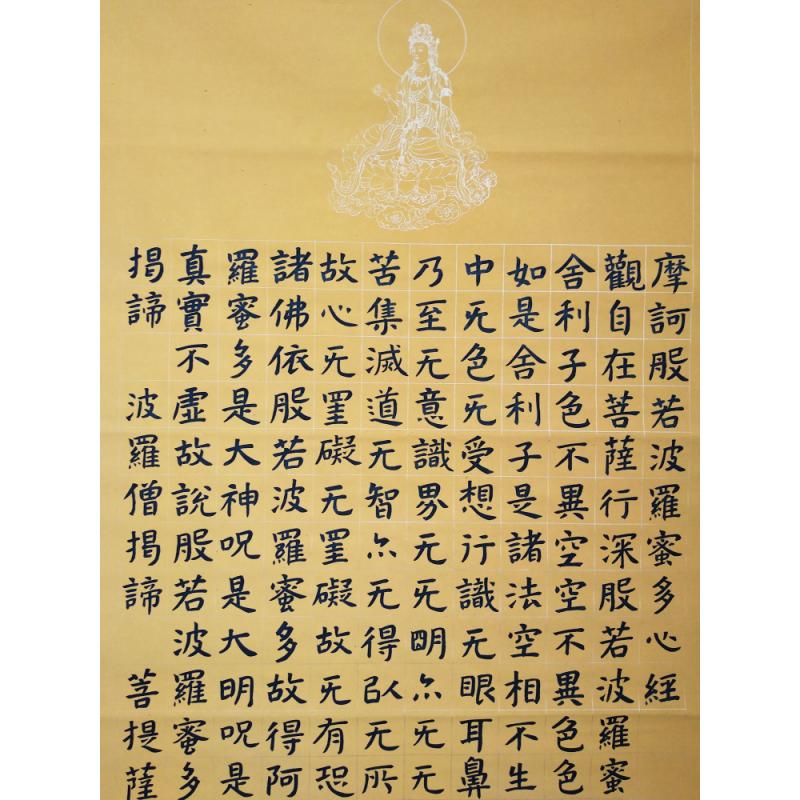 摩訶般若波羅蜜多心經
觀自在菩薩行深般若波羅蜜
舍利子色不異空空不異色色
如是舍利子是諸法空相不生
中无色无受想行識无眼耳鼻
乃至无意識界无无明亦无无
苦集滅道无智亦无得以无所
故心无罣礙无罣礙故无有恐
諸佛依般若波羅蜜多故得阿
羅蜜多是大神呪是大明呪是
真實不虛故說般若波羅蜜多
揭諦 波羅僧揭諦 菩提薩